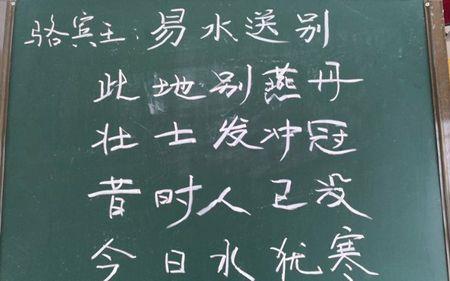 骆宾王：易水送别
此地别燕丹
壮士发冲冠
昔时人已没
今日水犹寒